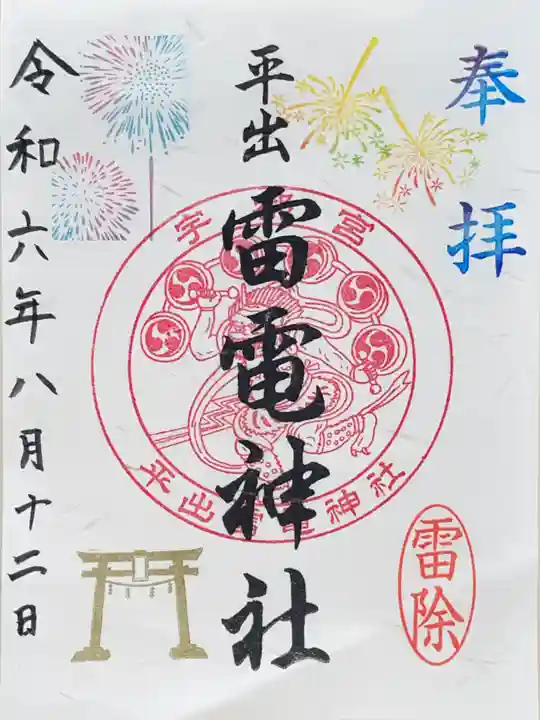 奉拝
平出雷電神社
宇都宮
平出雷電神社
雷除
令和六年八月十二日